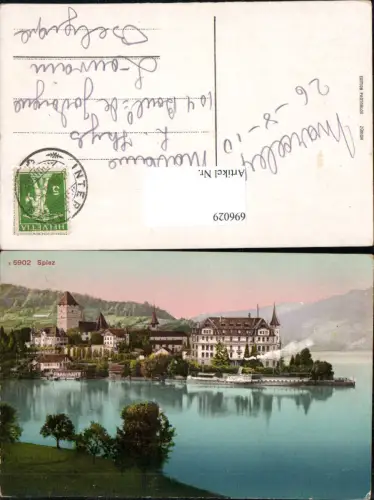 Madame
L. Thys
104 Boul. de Jodoigne
Louvain
Belgique
26-8-10
INTER
5
HELVETIA
Artikel Nr.
696029
5902 Spiez